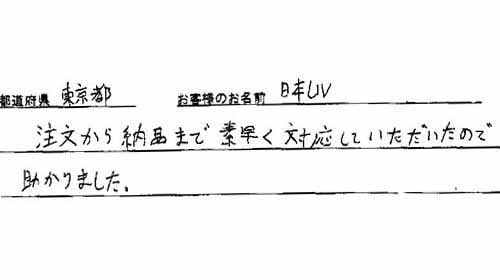 都道府県 東京都 お客様のお名前 日本UV
注文から納品まで素早く対応していただいたので
助かりました。